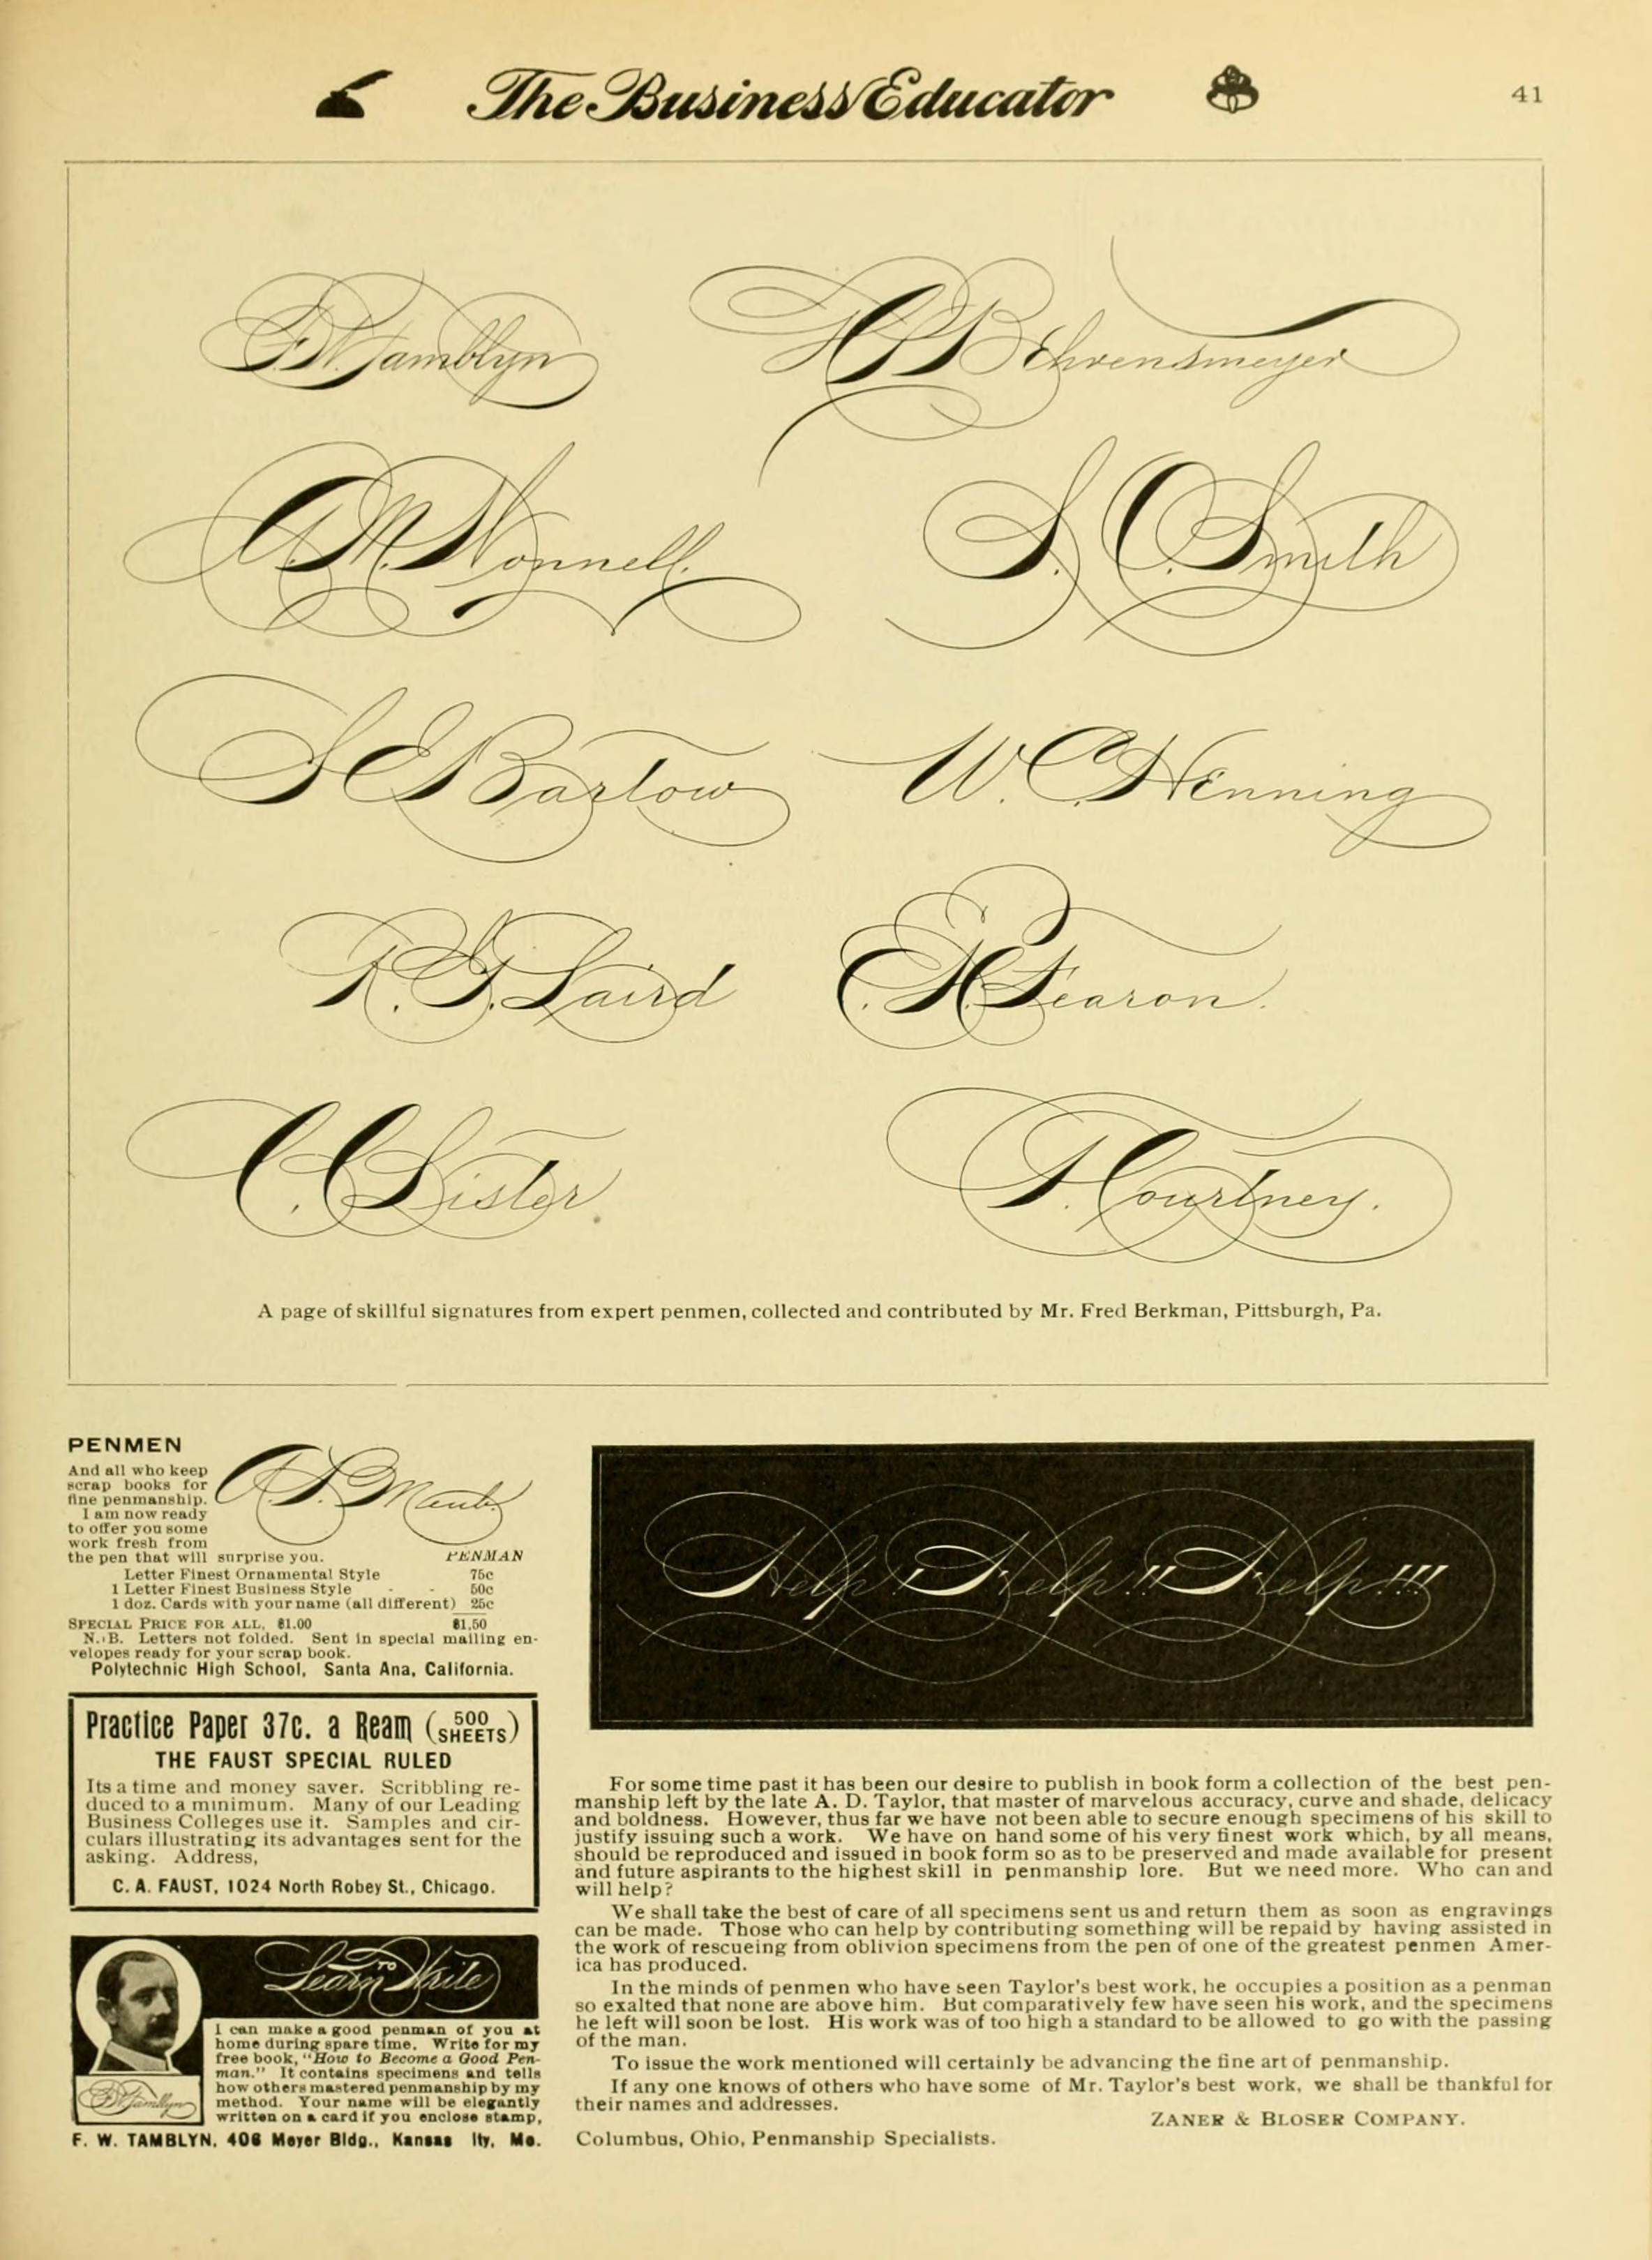 The Business Educator
41
F. W. Tamblyn
H P Behrensmeyer
S. C. Smith
S E Bartow
W. C. Henning
R. G. Laird
E. H. Fearon.
C. C. Lister
F. Courtney.
A page of skillful signatures from expert penmen, collected and contributed by Mr. Fred Berkman, Pittsburgh, Pa.
PENMEN
And all who keep
scrap books for
fine penmanship.
I am now ready
to offer you some
work fresh from
the pen that will surprise you.
PENMAN
Letter Finest Ornamental Style 75c
1 Letter Finest Business Style - - 50c
1 doz. Cards with your name (all different) 25c
SPECIAL PRICE FOR ALL, $1.00 $1.50
N. B. Letters not folded. Sent in special mailing en-
velopes ready for your scrap book.
Polytechnic High School, Santa Ana, California.
Practice Paper 37c. a Ream (500 SHEETS)
THE FAUST SPECIAL RULED
Its a time and money saver. Scribbling re-
duced to a minimum. Many of our Leading
Business Colleges use it. Samples and cir-
culars illustrating its advantages sent for the
asking. Address,
C. A. FAUST, 1024 North Robey St., Chicago.
Learn TO Write
F. W. Tamblyn
I can make a good penman of you at
home during spare time. Write for my
free book, "How to Become a Good Pen-
man." It contains specimens and tells
how others mastered penmanship by my
method. Your name will be elegantly
written on a card if you enclose stamp,
F. W. TAMBLYN, 406 Meyer Bldg., Kansas ity, Mo.
Help! Help!! Help!!!
For some time past it has been our desire to publish in book form a collection of the best pen-
manship left by the late A. D. Taylor, that master of marvelous accuracy, curve and shade, delicacy
and boldness. However, thus far we have not been able to secure enough specimens of his skill to
justify issuing such a work. We have on hand some of his very finest work which, by all means,
should be reproduced and issued in book form so as to be preserved and made available for present
and future aspirants to the highest skill in penmanship lore. But we need more. Who can and
will help?
We shall take the best of care of all specimens sent us and return them as soon as engravings
can be made. Those who can help by contributing something will be repaid by having assisted in
the work of rescueing from oblivion specimens from the pen of one of the greatest penmen Amer-
ica has produced.
In the minds of penmen who have seen Taylor's best work, he occupies a position as a penman
so exalted that none are above him. But comparatively few have seen his work, and the specimens
he left will soon be lost. His work was of too high a standard to be allowed to go with the passing
of the man.
To issue the work mentioned will certainly be advancing the fine art of penmanship.
If any one knows of others who have some of Mr. Taylor's best work, we shall be thankful for
their names and addresses.
ZANER & BLOSER COMPANY.
Columbus, Ohio, Penmanship Specialists.